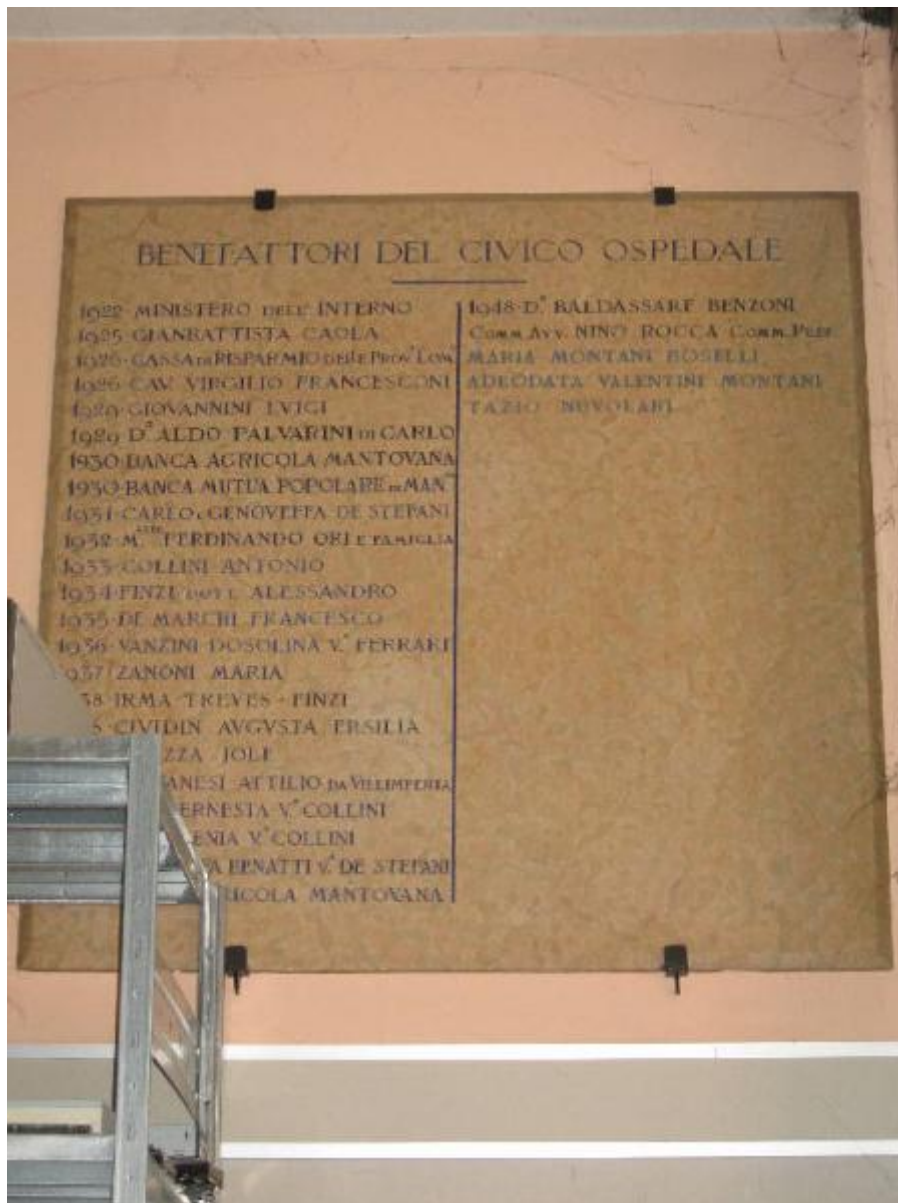 BENEFATTORI DEL CIVICO OSPEDALE
1922·MINISTERO DELL' INTERNO
1925·GIANBATTISTA CAOLA
1926·CASSA DI RISPARMIO DELLE PROV. LOM.
1926·CAV. VIRGILIO FRANCESCONI
1929·GIOVANNINI LVIGI
1929·D.R ALDO PALVARINI DI CARLO
1930·BANCA AGRICOLA MANTOVANA
1930·BANCA MUTUA POPOLARE DI MAN.
1931·CARLO E GENOVEFFA DE STEFANI
1932·M. FERDINANDO ORI E FAMIGLIA
1933·COLLINI ANTONIO
1934·FINZI DOTT. ALESSANDRO
1935·DE MARCHI FRANCESCO
1936·VANZINI DOSOLINA V.A FERRARI
1937·ZANONI MARIA
38·IRMA TREVES-FINZI
CIVIDIN AVGVSTA ERSILIA
ZZA JOLE
ANESI ATTILIO DA VILLIMPENTA
ERNESTA V.A COLLINI
ENIA V.A COLLINI
BENATTI V.A DE STEFANI
RICOLA MANTOVANA
1948·D.R BALDASSARE BENZONI
COMM. AVV. NINO ROCCA COMM. PREF.
MARIA MONTANI BOSELLI
ADEODATA VALENTINI MONTANI
TAZIO NUVOLARI